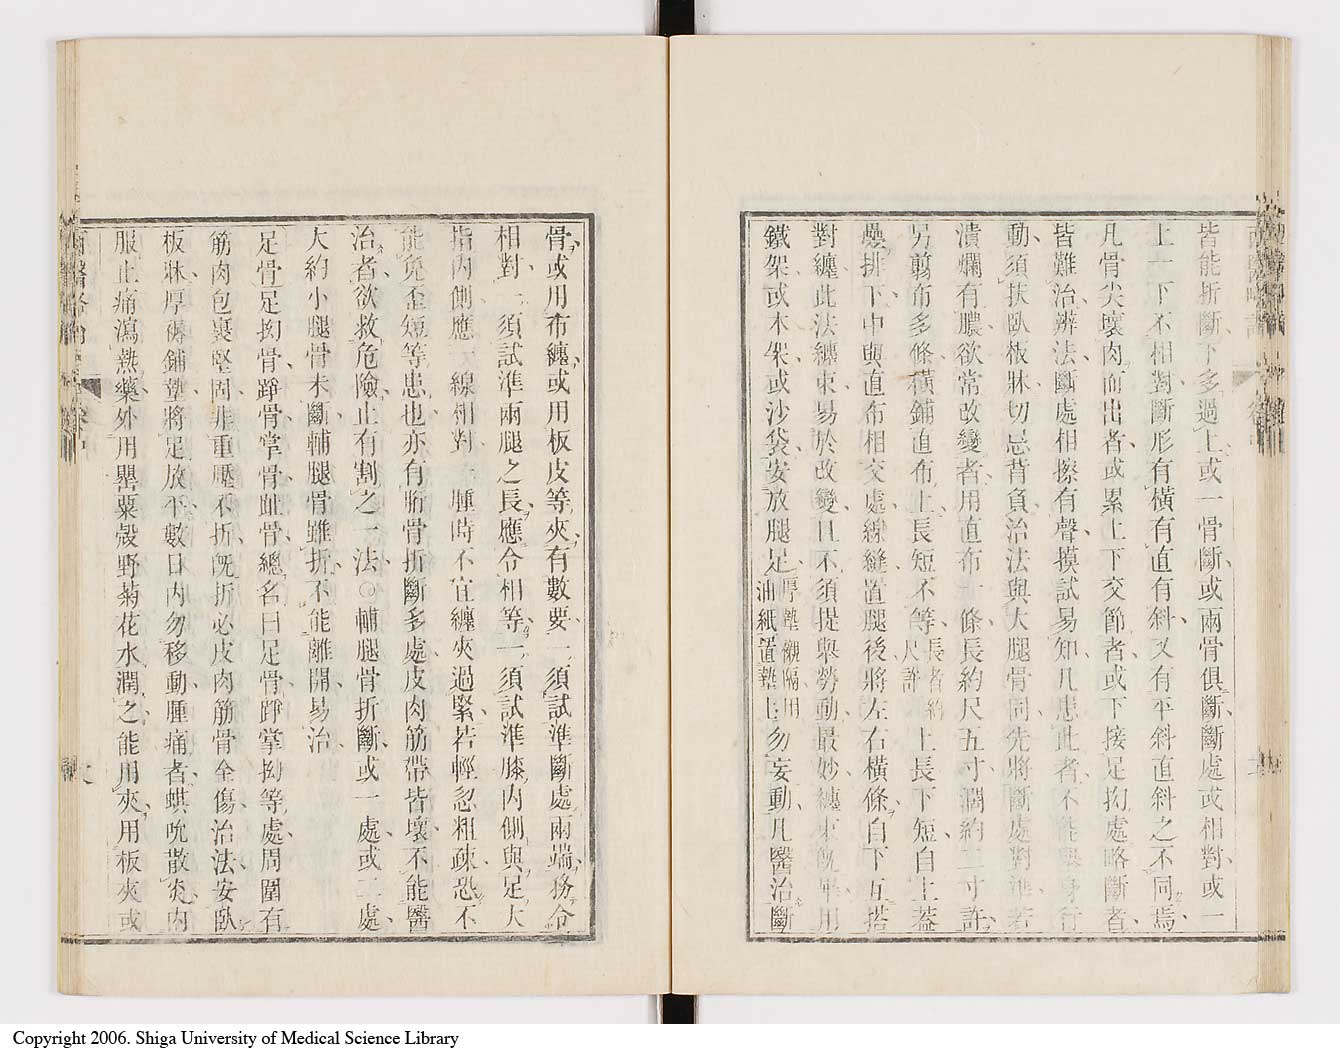 皆能折斷下多過上或一骨斷或兩骨俱斷斷處或相對或一
上一下不相對斷形有橫有直有斜又有平斜直斜之不同焉
凡骨尖壞肉而出者或累上下交節者或下接足拗處略斷者
皆難治辨法斷處相擦有聲摸試易知凡患此者不能舉身行
動須扶臥板牀切忌背負治法與大腿骨同先將斷處對準若
潰爛有膿欲常改變者用直布一條長約尺五寸濶約二寸許
另剪布多條橫鋪直布上長短不等長者約尺許上長下短自上蓋
疊排下中與直布相交處線縫置腿後將左右橫條自下互搭
對纏此法纏束易於改變且不須提舉勞動最妙纏束旣畢用
鐵架或木架或沙袋安放腿足厚墊襯隔用油紙置墊上勿妄動凡醫治斷
骨或用布纏或用板皮等夾有數要一須試準斷處兩端務令
相對一須試準兩腿之長應令相等一須試準膝內側與足大
指內側應一線相對一腫時不宜纏夾過緊若輕忽粗疎恐不
能免歪短等患也亦有骱骨折斷多處皮肉筋帶皆壞不能醫
治者欲救危險止有割之一法○輔腿骨折斷或一處或二處
大約小腿骨未斷輔腿骨雖折不能離開易治
足骨足拗骨踭骨掌骨趾骨總名曰足骨踭掌拗等處周圍有
筋肉包裹堅固非重壓不折旣折必皮肉筋骨全傷治法安臥
板牀厚褥鋪墊將足放平數日內勿移動腫痛者蜞吮散炎內
服止痛瀉熱藥外用罌粟殼野菊花水潤之能用夾用板夾或
Copyright 2006. Shiga University of Medical Science Library